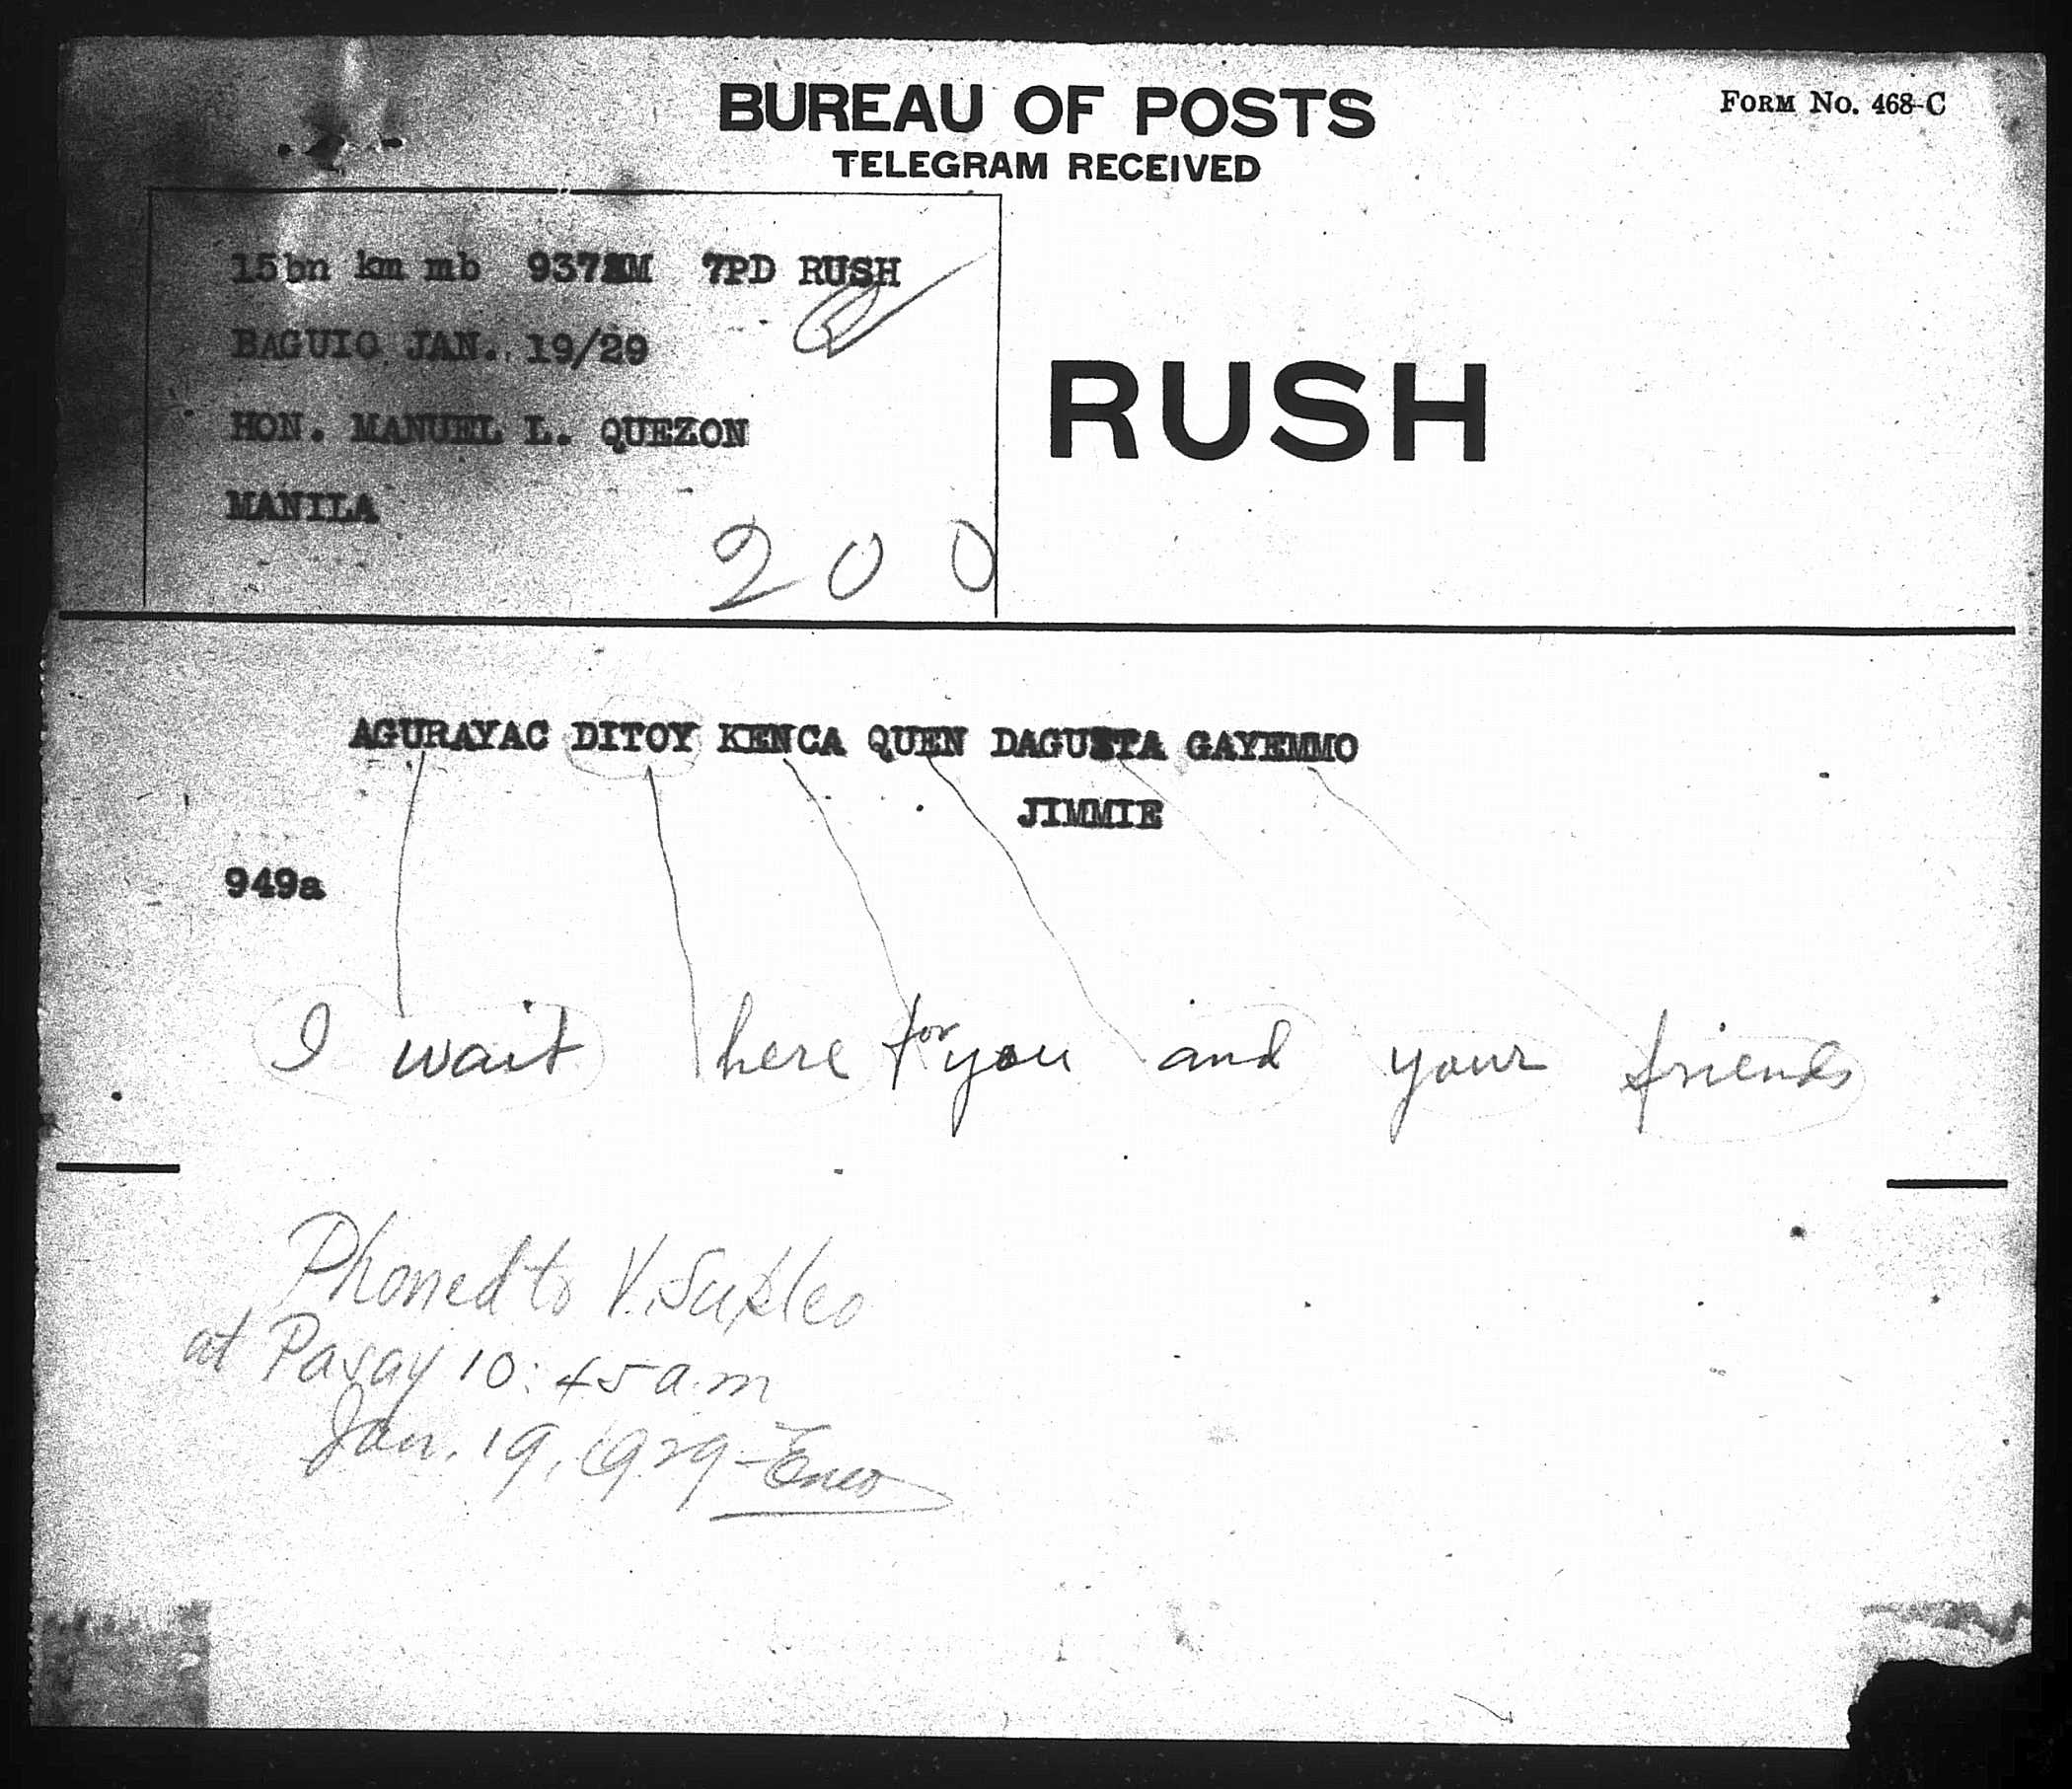 BUREAU OF POSTS
FORM NO. 468-C
TELEGRAM RECEIVED
15bn km mb 937AM 7PD RUSH
BAGUIO JAN. 19/29
HON. MANUEL L. QUEZON
MANILA
200
RUSH
AGURAYAC DITOY KENCA QUEN DAGUITA GAYEMMO
JIMMIE
949a
I wait here for you and your friends
Phoned to V.
at Pasay 10:45 a.m
Jan. 19, 1929 -